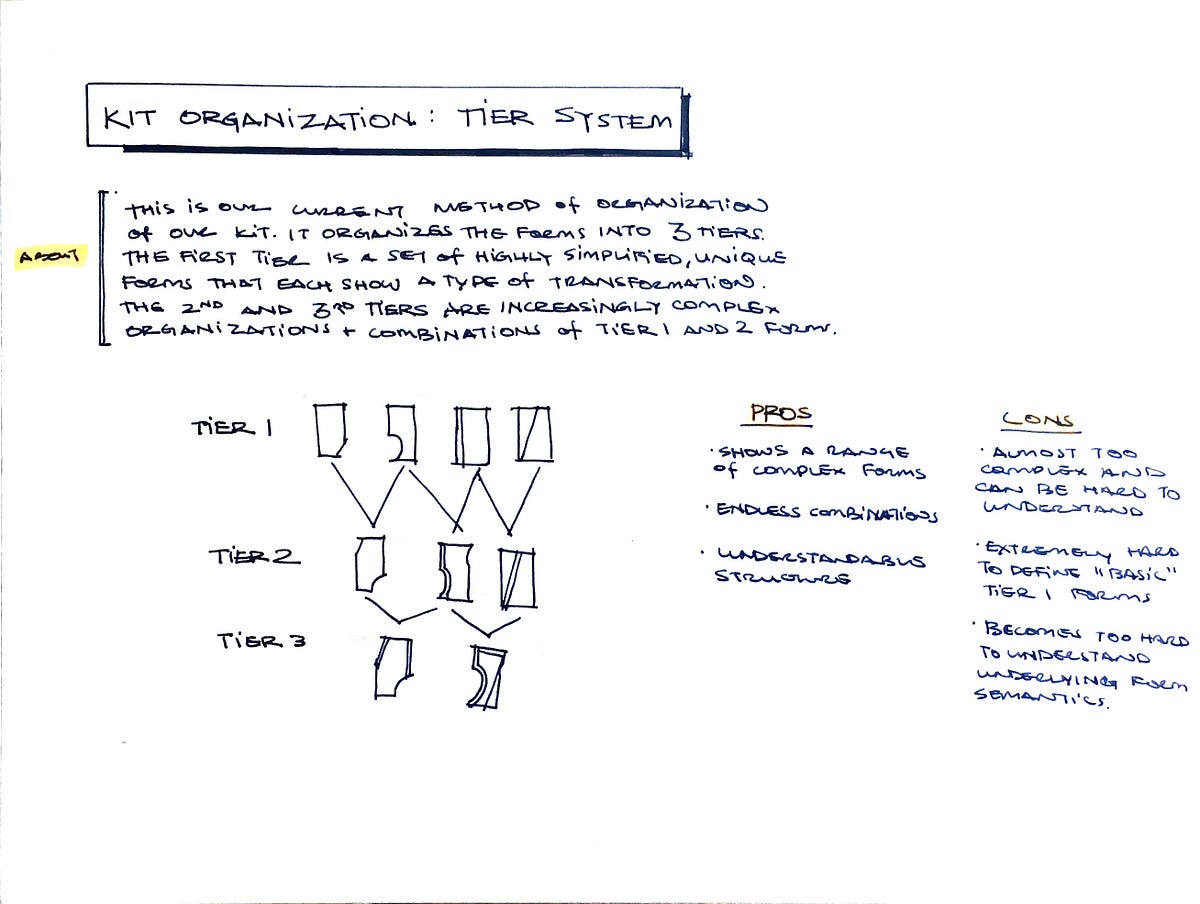 KIT ORGANIZATION: TIER SYSTEM
ABOUT
THIS IS OUR CURRENT METHOD OF ORGANIZATION
OF OUR KIT. IT ORGANIZES THE FORMS INTO 3 TIERS.
THE FIRST TIER IS A SET OF HIGHLY SIMPLIFIED, UNIQUE
FORMS THAT EACH SHOW A TYPE OF TRANSFORMATION.
THE 2ND AND 3RD TIERS ARE INCREASINGLY COMPLEX
ORGANIZATIONS + COMBINATIONS OF TIER 1 AND 2 FORM.
TIER 1
TIER 2
TIER 3
PROS
· SHOWS A RANGE
OF COMPLEX FORMS
· ENDLESS COMBINATIONS
· UNDERSTANDABLE
STRUCTURE
CONS
· ALMOST TOO
COMPLEX AND
CAN BE HARD TO
UNDERSTAND
· EXTREMELY HARD
TO DEFINE "BASIC"
TIER 1 FORMS
· BECOMES TOO HARD
TO UNDERSTAND
UNDERLYING FORM
SEMANTICS.